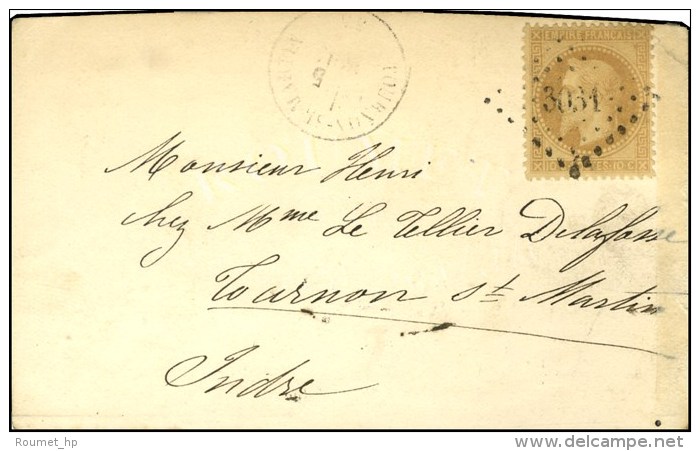 EMPIRE FRANÇAIS
3031
Monsieur Henri
chez Mme Le Tellier Delafosse
Tournon st Martin
Indre
Roumet_hp
delcampe.net